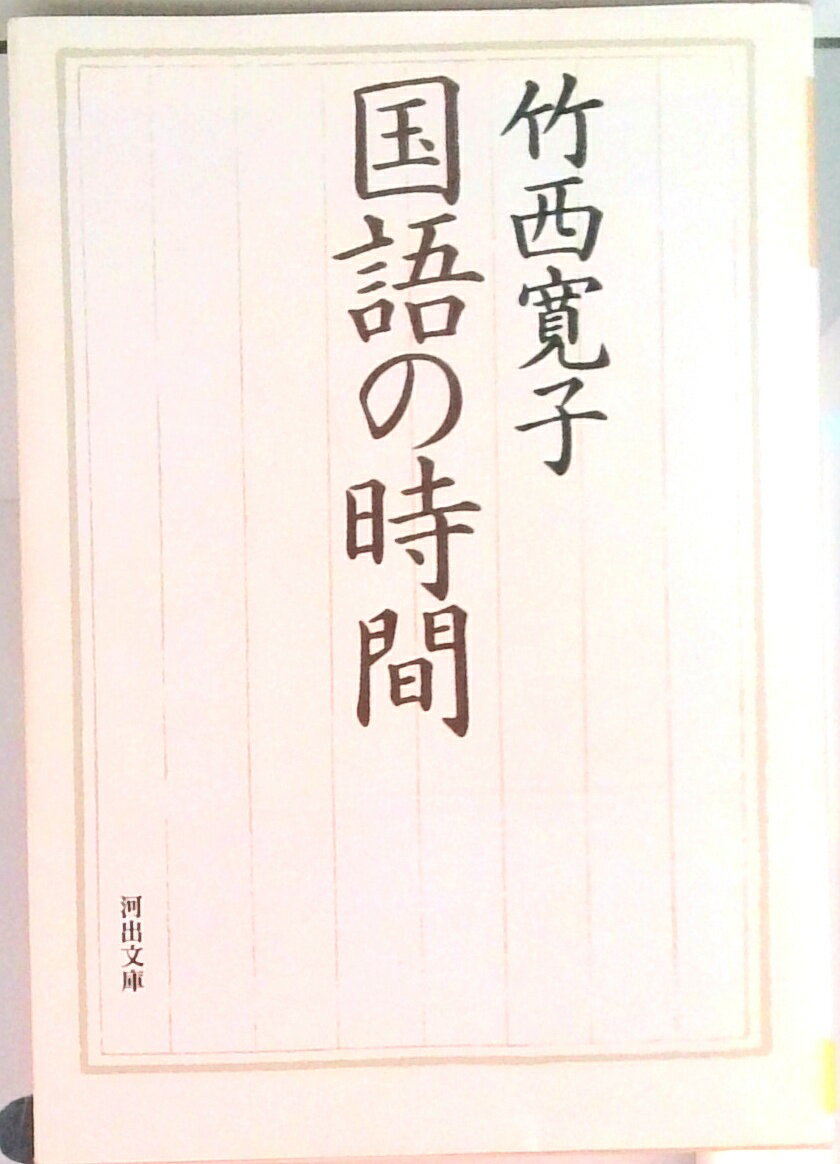 竹西寛子
国語の時間
河出文庫